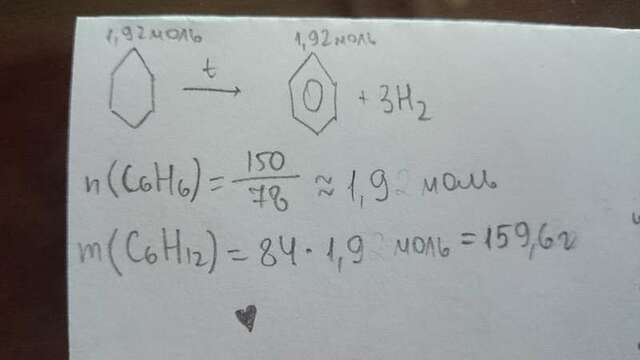 1,92моль 1,92моль
t
+ 3H₂
n(C₆H₆) = 150/78 ≈ 1,92 моль
m(C₆H₁₂) = 84 · 1,92 моль = 159,6г